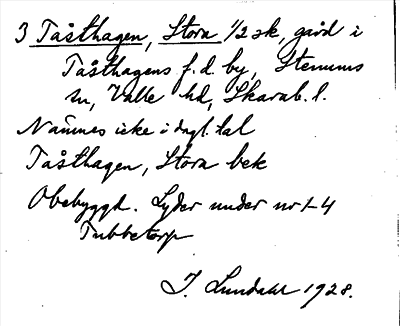 3 Tåsthagen, Stora 1/2 sk, gård i
Tåsthagens f.d. by, Stenums
sn, Valle hd, Skarab. l.
Nämnes icke i dagl. tal
Tåsthagen, Stora bek
Obebyggd. Lyder under nr 1-4
Tubbetorp
J. Lundahl 1928.